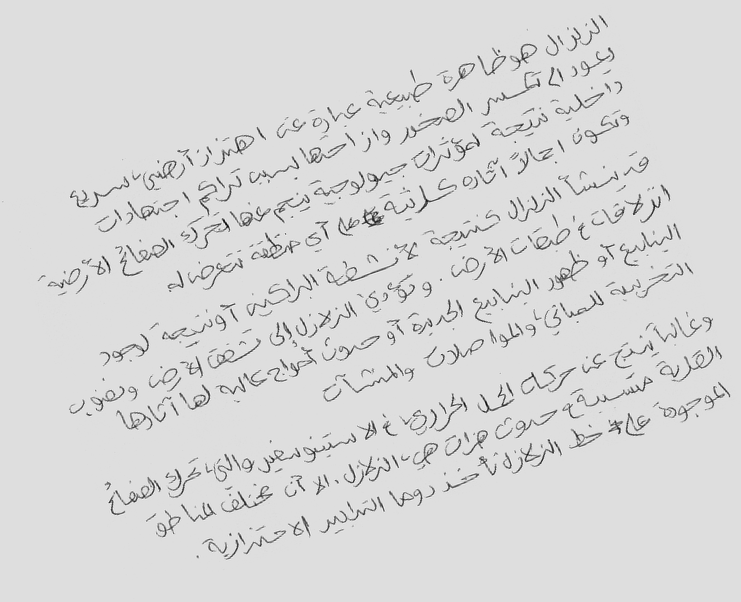 الزلزال هو ظاهرة طبيعية عبارة عن اهتزاز أرضي سريع
يعود الى تكسر الصخور وازاحتها بسبب تراكم اجتهادات
داخلية نتيجة لمؤثرات جيولوجية ينجم عنها تحرك الصفائح الأرضية
وتكون اجمالاً آثاره كارثية على أي منطقة تتعرض له
قد ينشأ الزلزال كنتيجة لأنشطة البراكين أو نتيجة لوجود
انزلاقات في طبقات الأرض. وتؤدي الزلازل إلى تشقق الأرض ونضوب
الينابيع أو ظهور الينابيع الجديدة أو حدوث أمواج عالية لها آثارها
التخريبية للمباني والمواصلات والمنشآت
وغالباً ينتج عن حركات الحمل الحراري في الاستينوسفير والتي تحرك الصفائح
القارية متسببة في حدوث هزات هي الزلازل. الا أن مختلف المناطق
الموجودة على خط الزلازل تأخذ دوما التدابير الاحترازية.